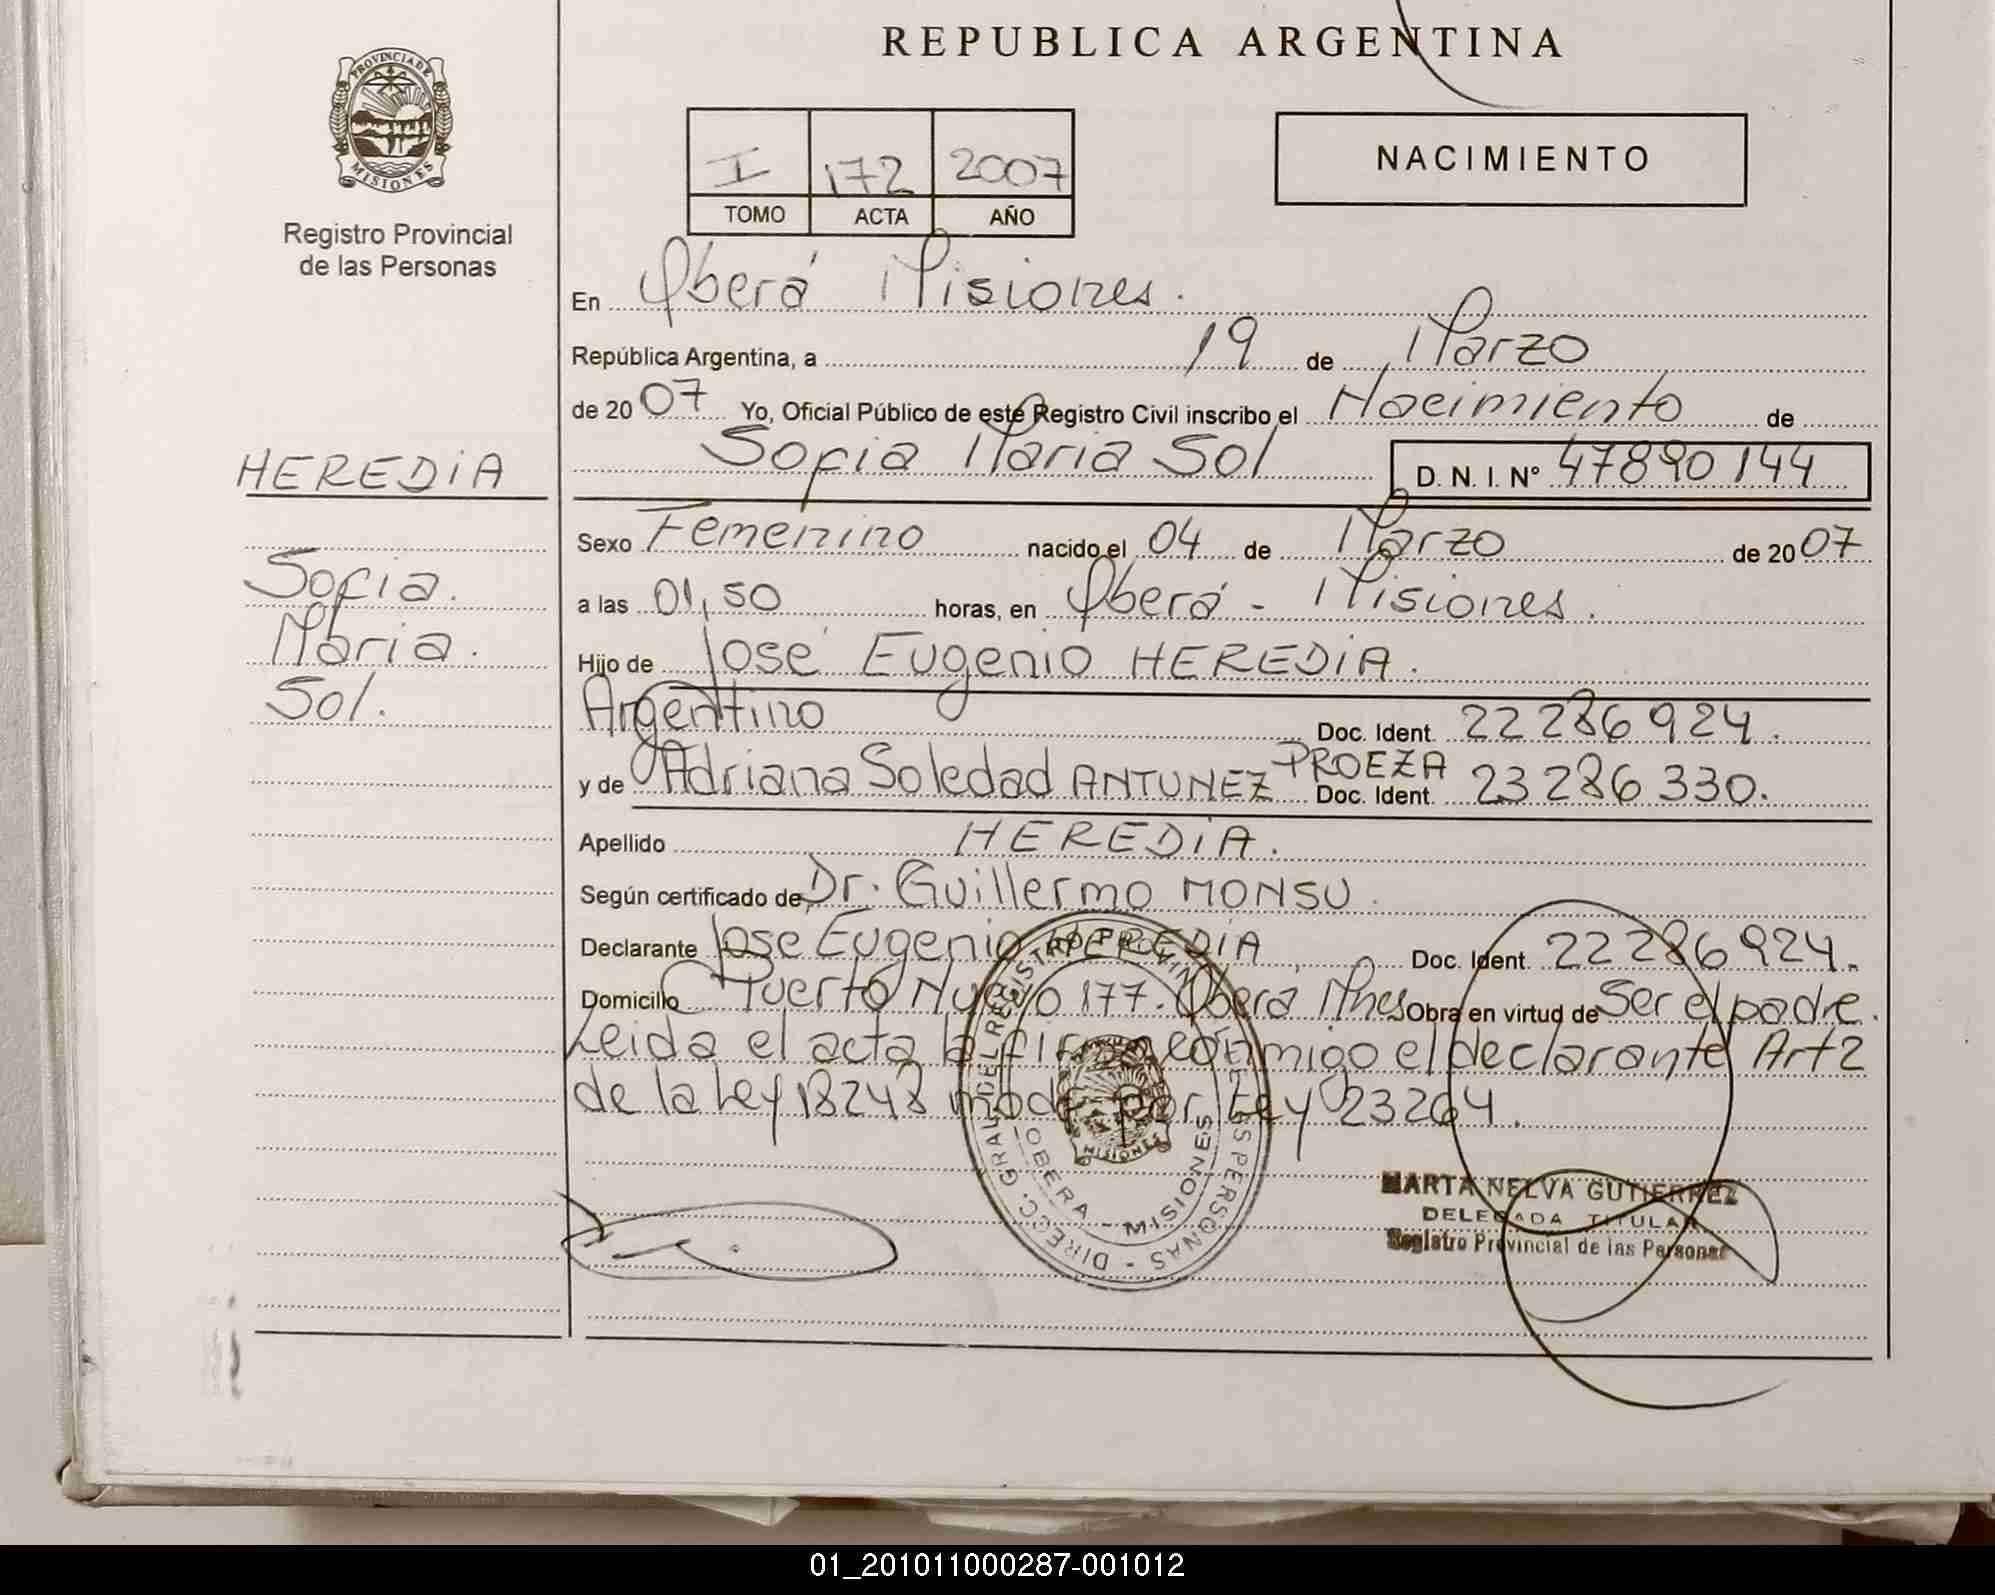 REPUBLICA ARGENTINA
PROVINCIA DE
MISIONES
Registro Provincial
de las Personas
I 172 2007
TOMO ACTA AÑO
NACIMIENTO
En Oberá Misiones.
República Argentina, a 19 de Marzo
de 2007 Yo, Oficial Público de este Registro Civil inscribo el Nacimiento de
Sofia Maria Sol D. N. I. Nº 47890144
HEREDIA
Sofia.
Maria.
Sol.
Sexo Femenino nacido el 04 de Marzo de 2007
a las 01,50 horas, en Oberá - Misiones.
Hijo de José Eugenio HEREDIA.
Argentino Doc. Ident. 22286924.
y de Adriana Soledad ANTUNEZ PROEZA Doc. Ident. 23286330.
Apellido HEREDIA.
Según certificado de Dr. Guillermo MONSU.
Declarante Jose Eugenio HEREDIA Doc. Ident. 22286924.
Domicilio Puerto Nuevo 177. Obera Mnes Obra en virtud de Ser el padre.
Leida el acta la firma conmigo el declarante Art 2
de la Ley 18248 mod. por Ley 23264.
DIRECC. GRAL. DEL REGISTRO PROVINCIAL DE LAS PERSONAS
OBERA - MISIONES
MISIONES
MARTA NELVA GUTIERREZ
DELEGADA TITULAR
Registro Provincial de las Personas
01_201011000287-001012